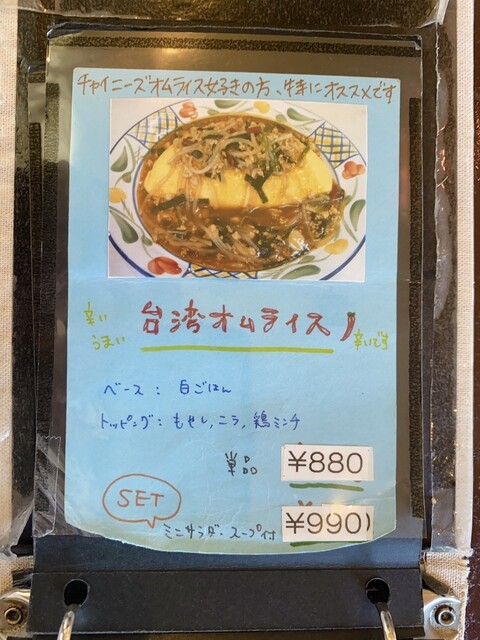 チャイニーズオムライス好きの方、特にオススメです
辛い
うまい
台湾オムライス
辛いです
ベース：白ごはん
トッピング：もやし,ニラ,鶏ミンチ
単品 ¥880
SET
ミニサラダ・スープ付 ¥990